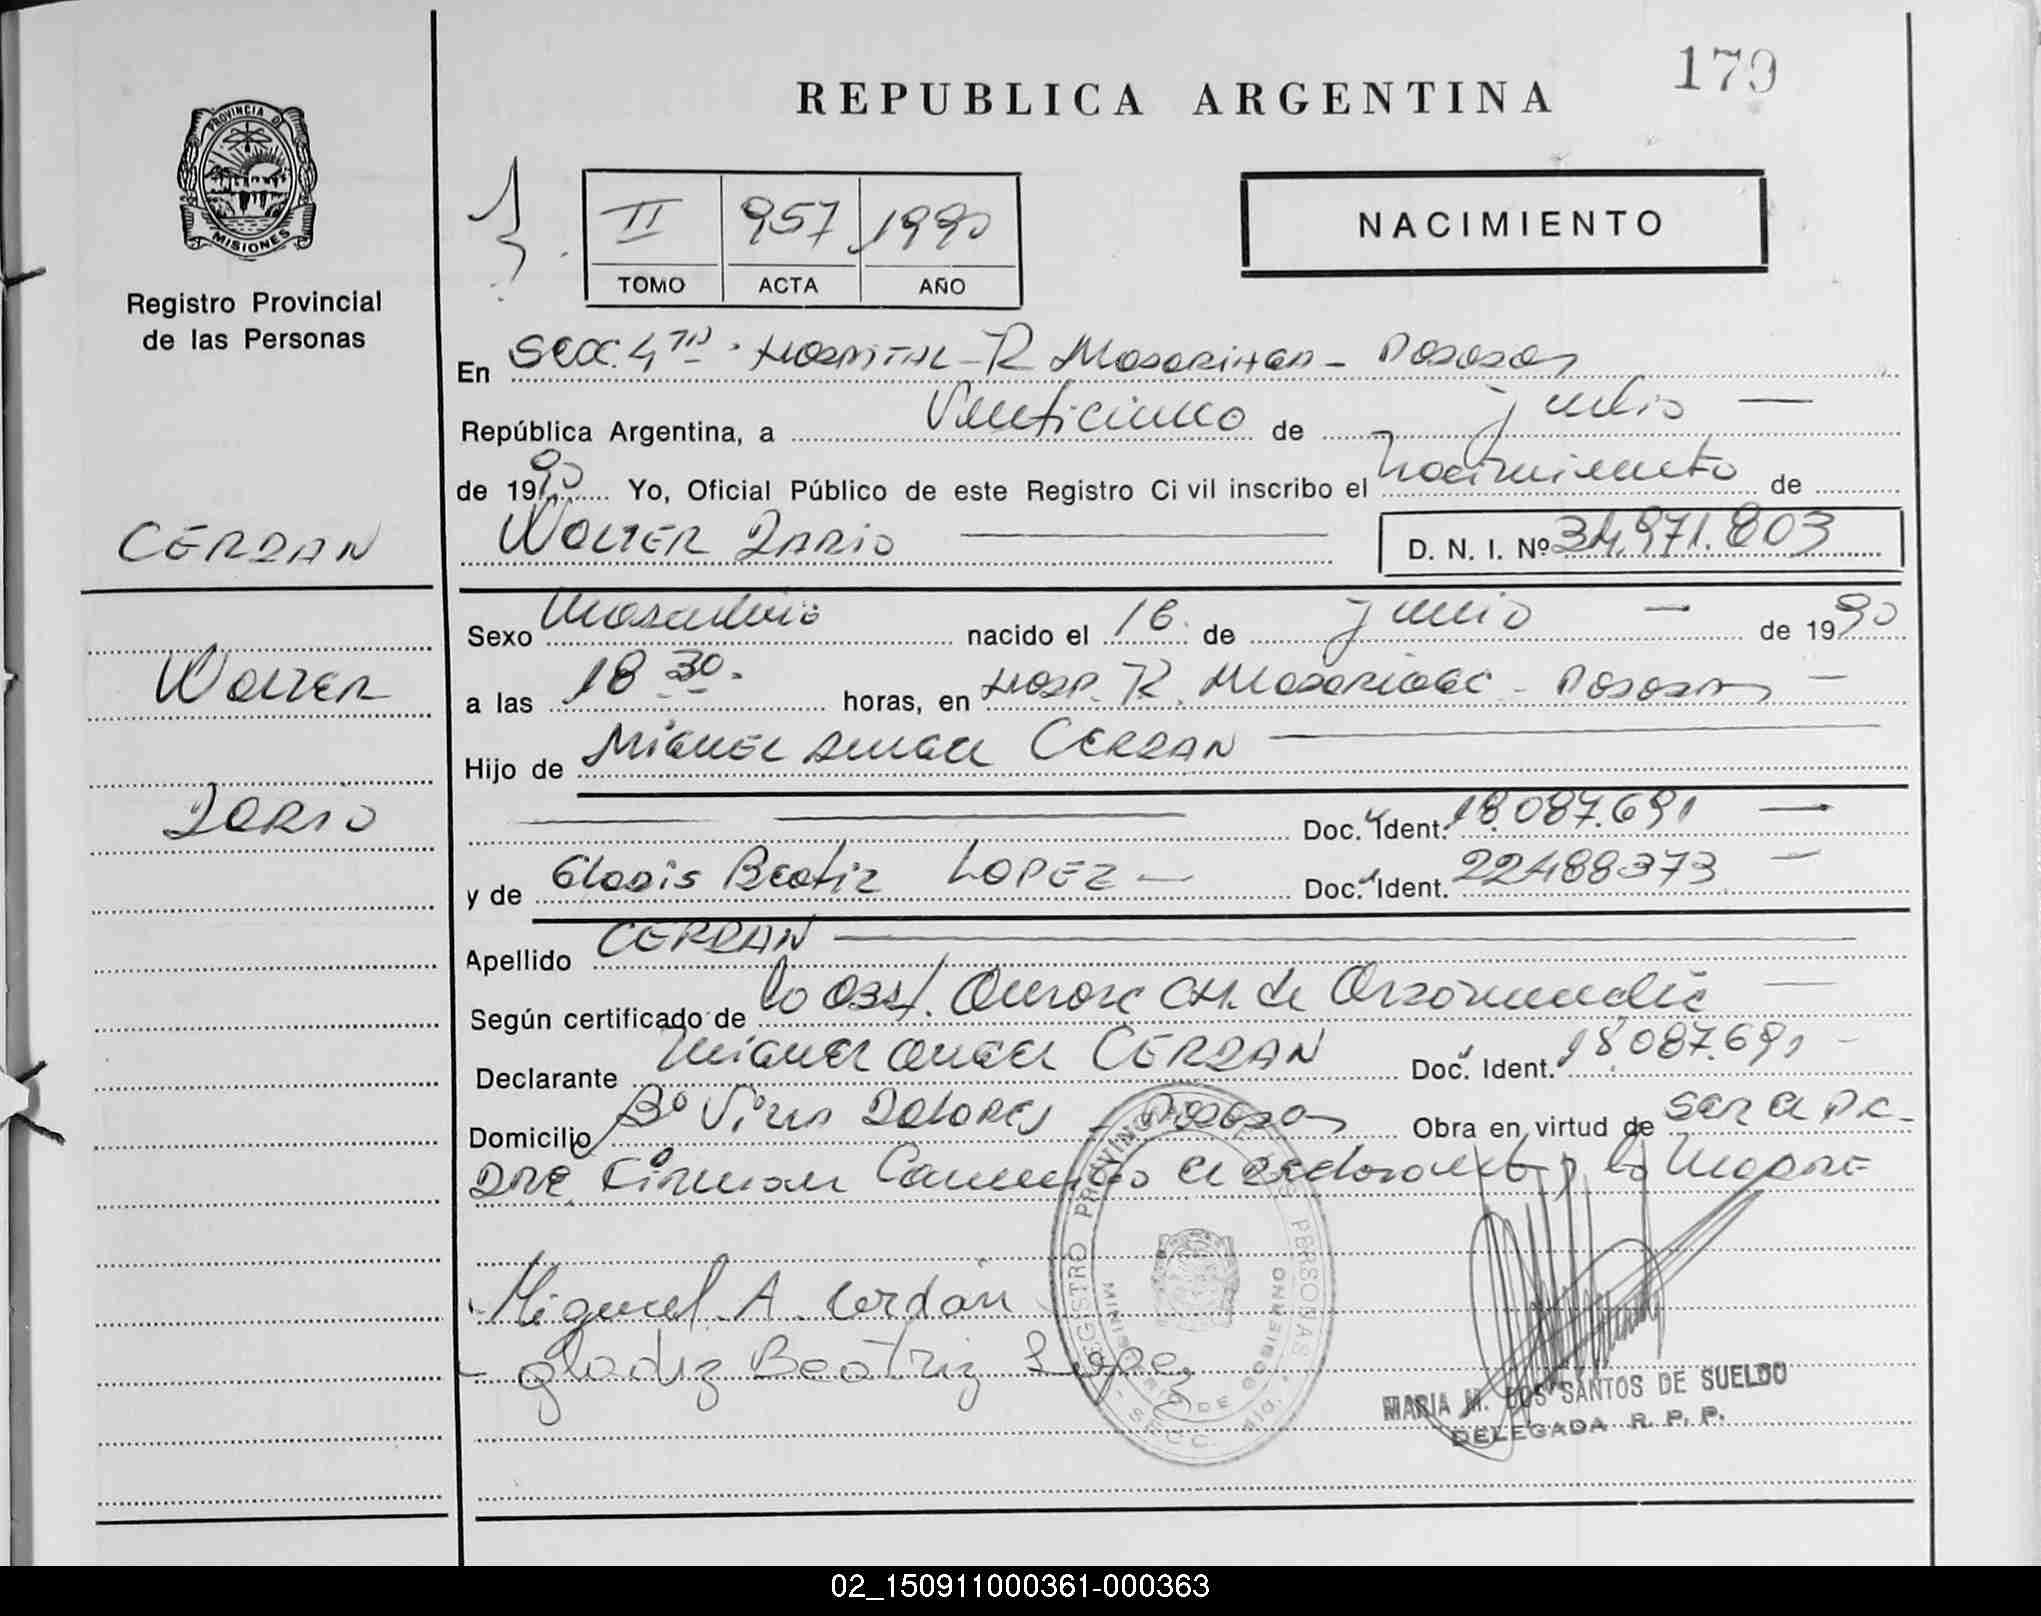 179
REPUBLICA ARGENTINA
PROVINCIA DE
MISIONES
Registro Provincial
de las Personas
II 957 1990
TOMO ACTA AÑO
NACIMIENTO
En Secc. 4ta. Hospital - R Madariaga - Posadas
República Argentina, a Veinticinco de junio —
de 1990 Yo, Oficial Público de este Registro Civil inscribo el nacimiento de
CERDAN
WALTER DARIO D. N. I. Nº 34.971.803
Sexo Masculino nacido el 16 de junio — de 1990
WALTER
a las 18 30 horas, en Hosp. R. Madariaga - Posadas —
Hijo de Miguel Angel CERDAN
DARIO
Doc. Ident. 18.087.691 —
y de Gladis Beatriz LOPEZ — Doc. Ident. 22488373 —
Apellido CERDAN
Según certificado de la Obst. Aurora CH. de
Declarante Miguel Angel CERDAN Doc. Ident. 18.087.691 —
Domicilio Bº Villa DOLORES - Posadas Obra en virtud de ser el PA-
DRE. Firman el declarante y la MADRE
Miguel A. Cerdán
gladiz Beatriz Lopez
REGISTRO PROVINCIAL DE LAS PERSONAS
MINISTERIO DE GOBIERNO
MARIA M. DOS SANTOS DE SUELDO
DELEGADA R. P. P.
02_150911000361-000363